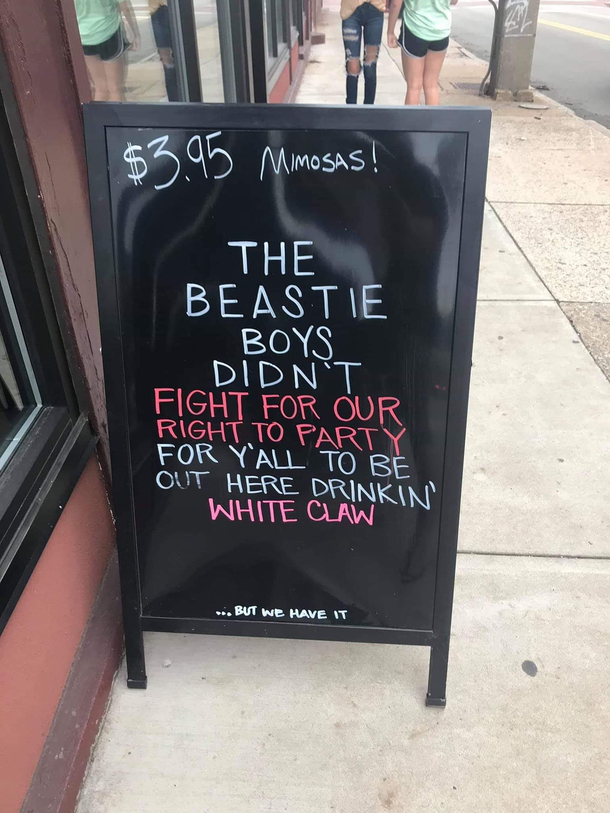 $3.95 MIMOSAS!
THE
BEASTIE
BOYS
DIDN'T
FIGHT FOR OUR
RIGHT TO PARTY
FOR Y'ALL TO BE
OUT HERE DRINKIN'
WHITE CLAW
... BUT WE HAVE IT